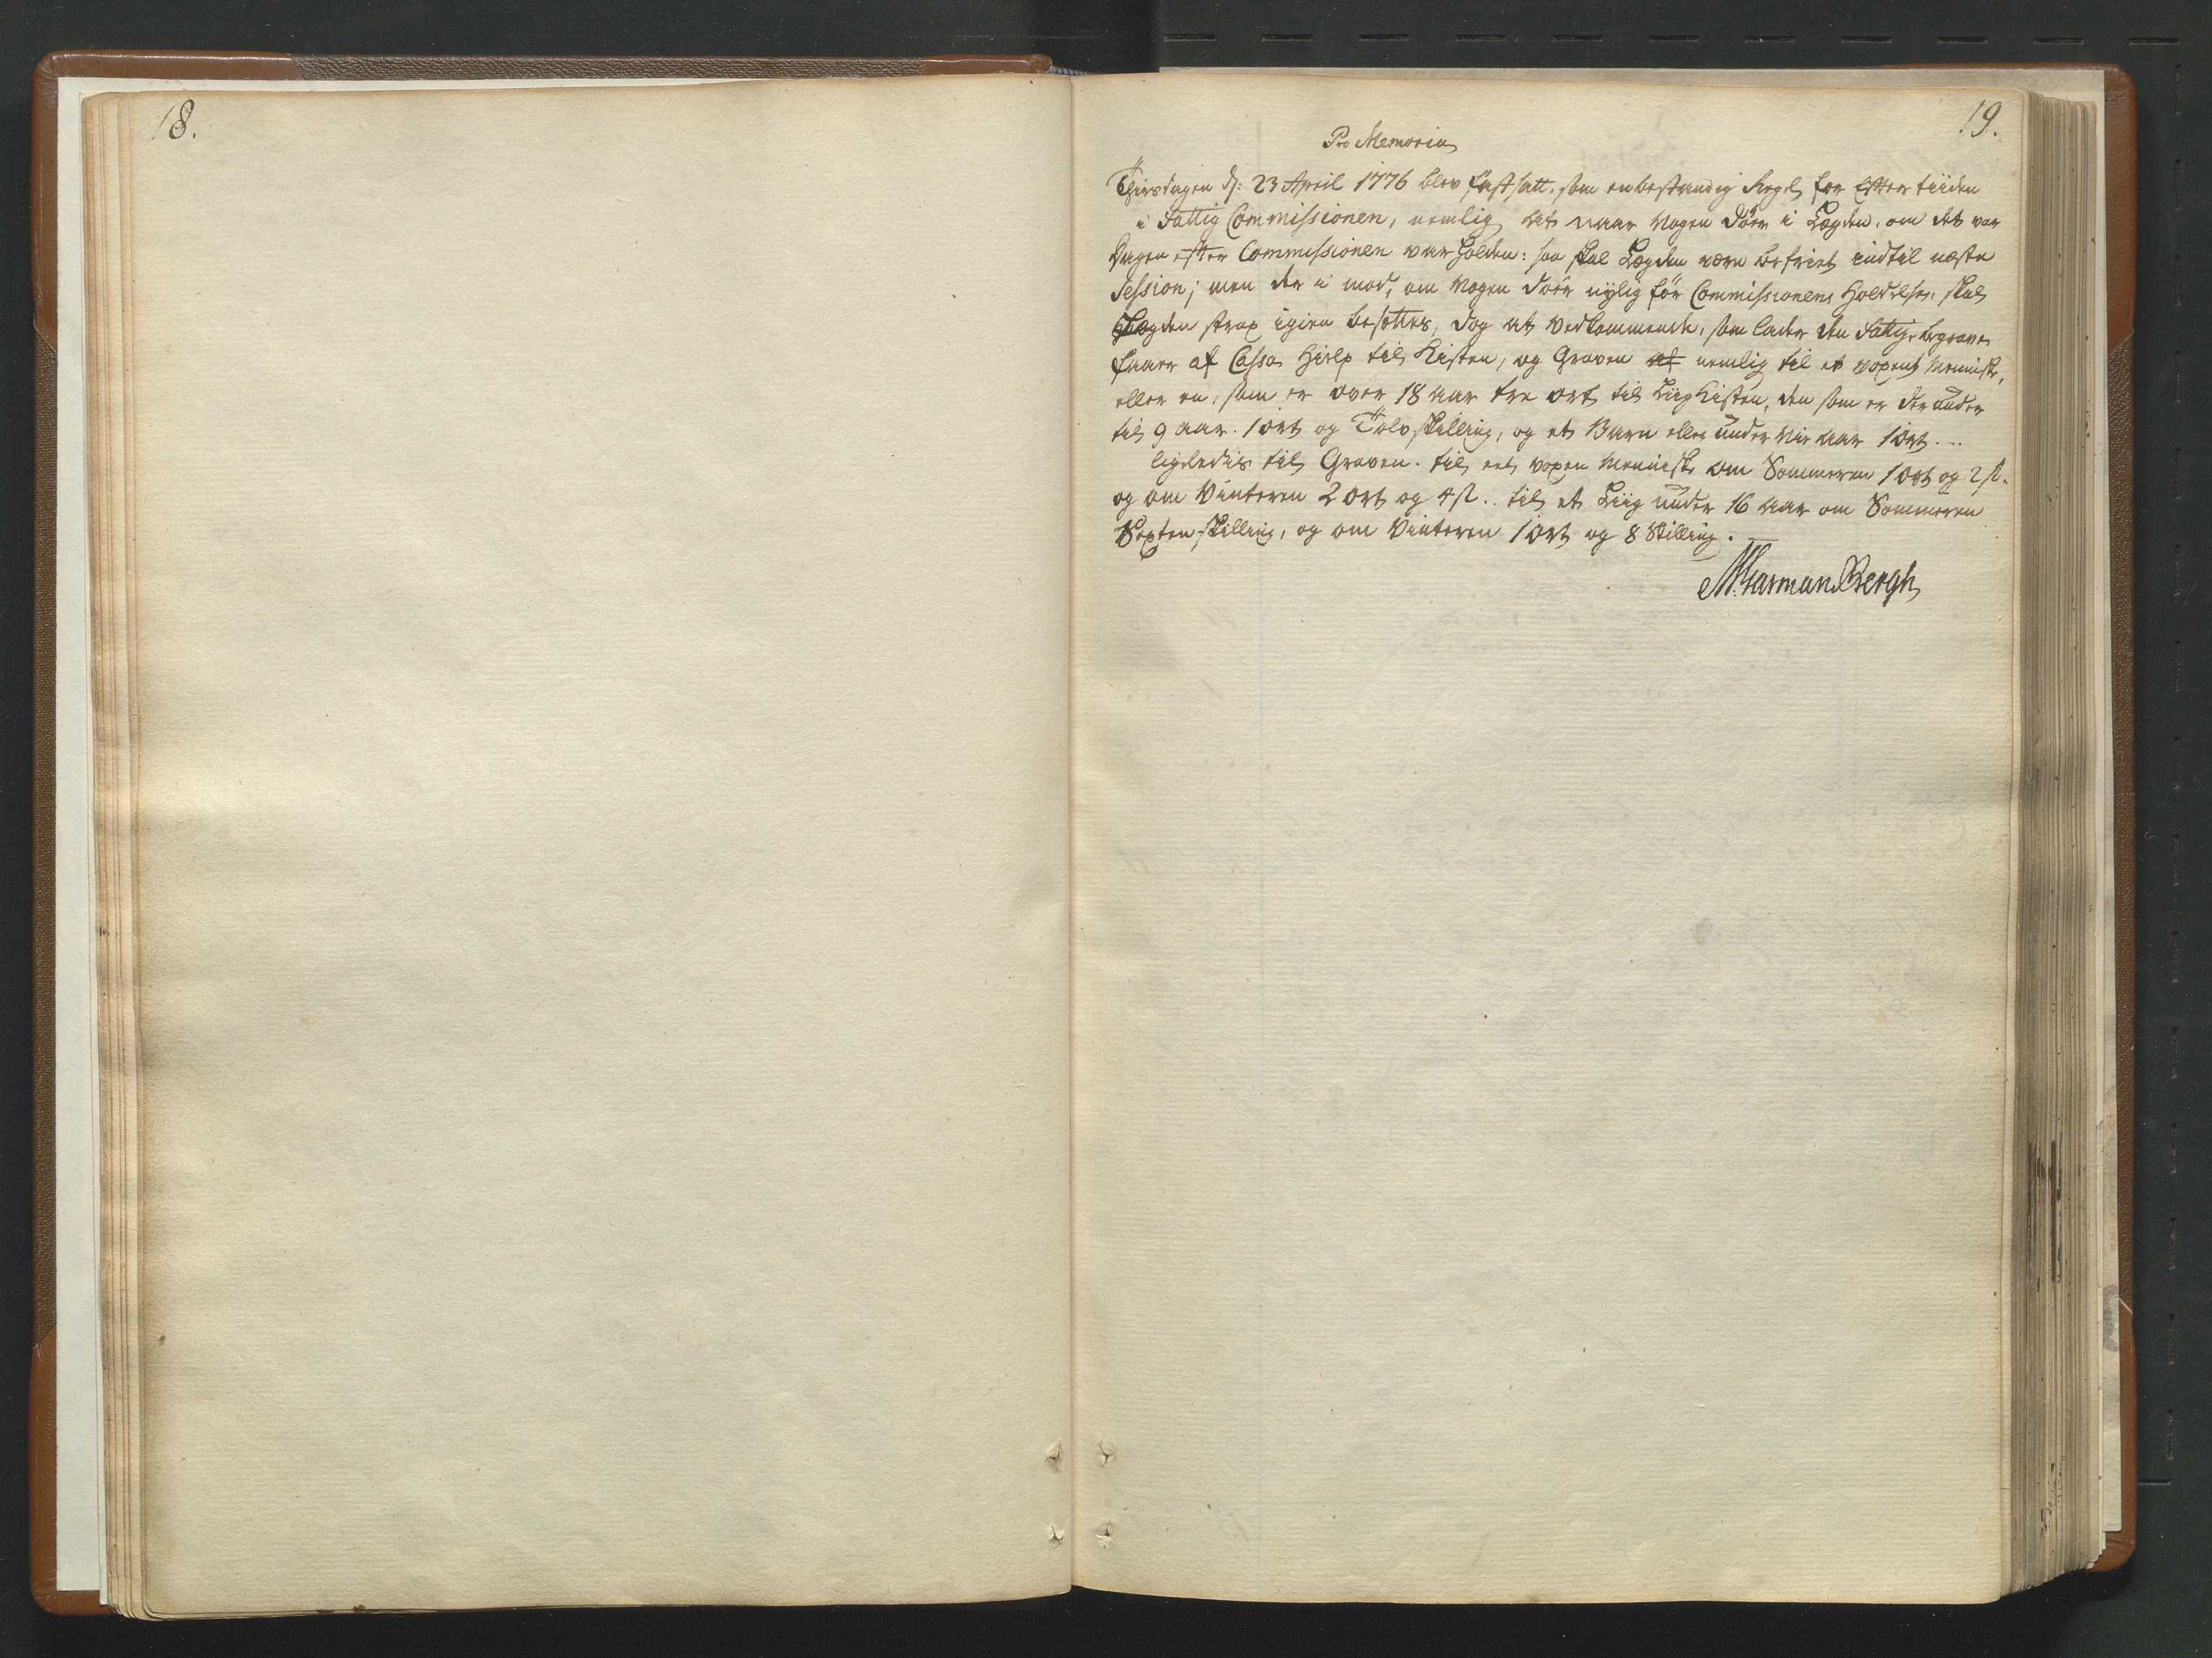 18.
19.
Pro Memoria
Thirsdagen d: 23 April 1776 blev fastsatt, som en bestandig Regel for Eftertiiden
i Fattig Commissionen, nemlig at naar Nogen döer i Lægden, om det var
Dagen efter Commissionen var holden: saa skal Lægden være befriet indtil næste
Session; men der i mod, om Nogen döer nylig för Commissionens Holdelse, skal
Lægden strax igien besættes, dog at Vedkommende, som lader den Fattige begrave
faaer af Cassa Hielp til Kisten, og Graven at nemlig til et voxent Menniske,
eller en, som er over 18 aar tre ort til Liig Kisten, den som er der under
til 9 aar. 1 ort og Tolv skilling, og et Barn eller under Nie aar 1 ort. ..
ligeledes til Graven. til eet voxen Menniske om Sommeren 1 ort og 2 s.
og om Vinteren 2 ort og 4 s.. til et Liig under 16 aar om Sommeren
Sexten skilling, og om Vinteren 1 ort og 8 Skilling.
M: Harman Bergh